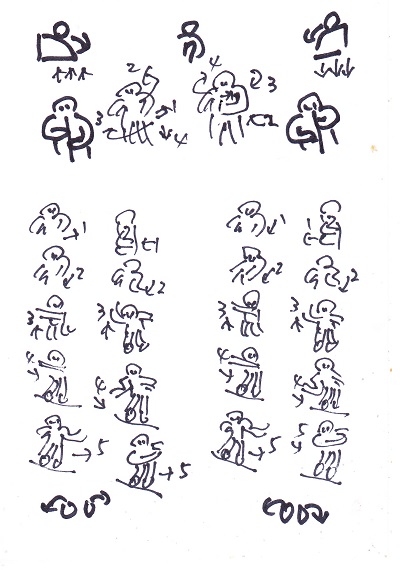 2 4
3 1 2 3
4 1
1 1 1 1
2 2 2 2
3 3 3 3
4 4 4 4
5 5 5 5